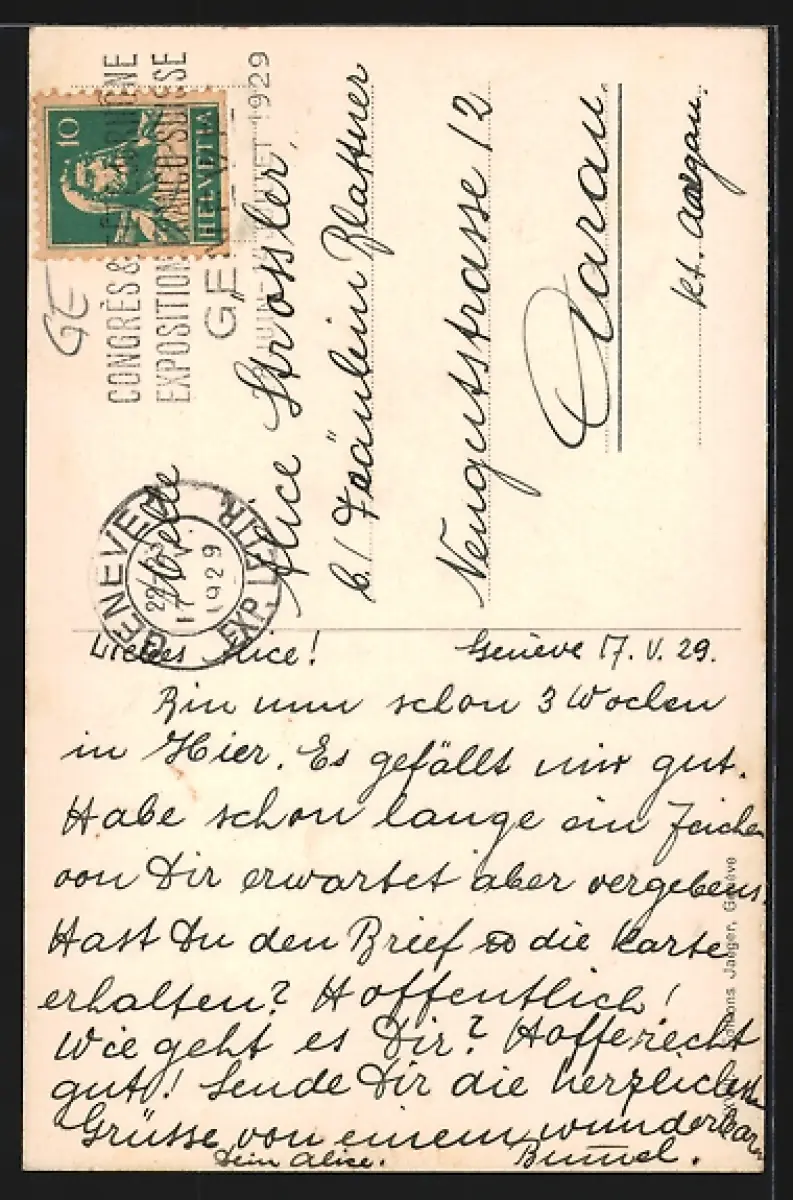 10
HELVETIA
CONGRÈS &
EXPOSITION FRANCO-SUISSE
GE
JUILLET 1929
GE
GENEVE 1
EXP. LETTR.
17.V.
1929
Alice Strossler,
b/ Fräulein Blattner
Neugutstrasse 12
Aarau
kt. Aargau.
Liebes Alice! Genève 17. V. 29.
Bin nun schon 3 Wochen
in Hier. Es gefällt mir gut.
Habe schon lange ein Zeichen
von Dir erwartet aber vergebens.
Hast Du den Brief die Karte
erhalten? Hoffentlich!
Wie geht es Dir? Hoffe recht
gut! Sende Dir die herzlichsten
Grüsse von einem wunderbaren
Dein Alice. Bummel.
Editions Jaeger, Genève